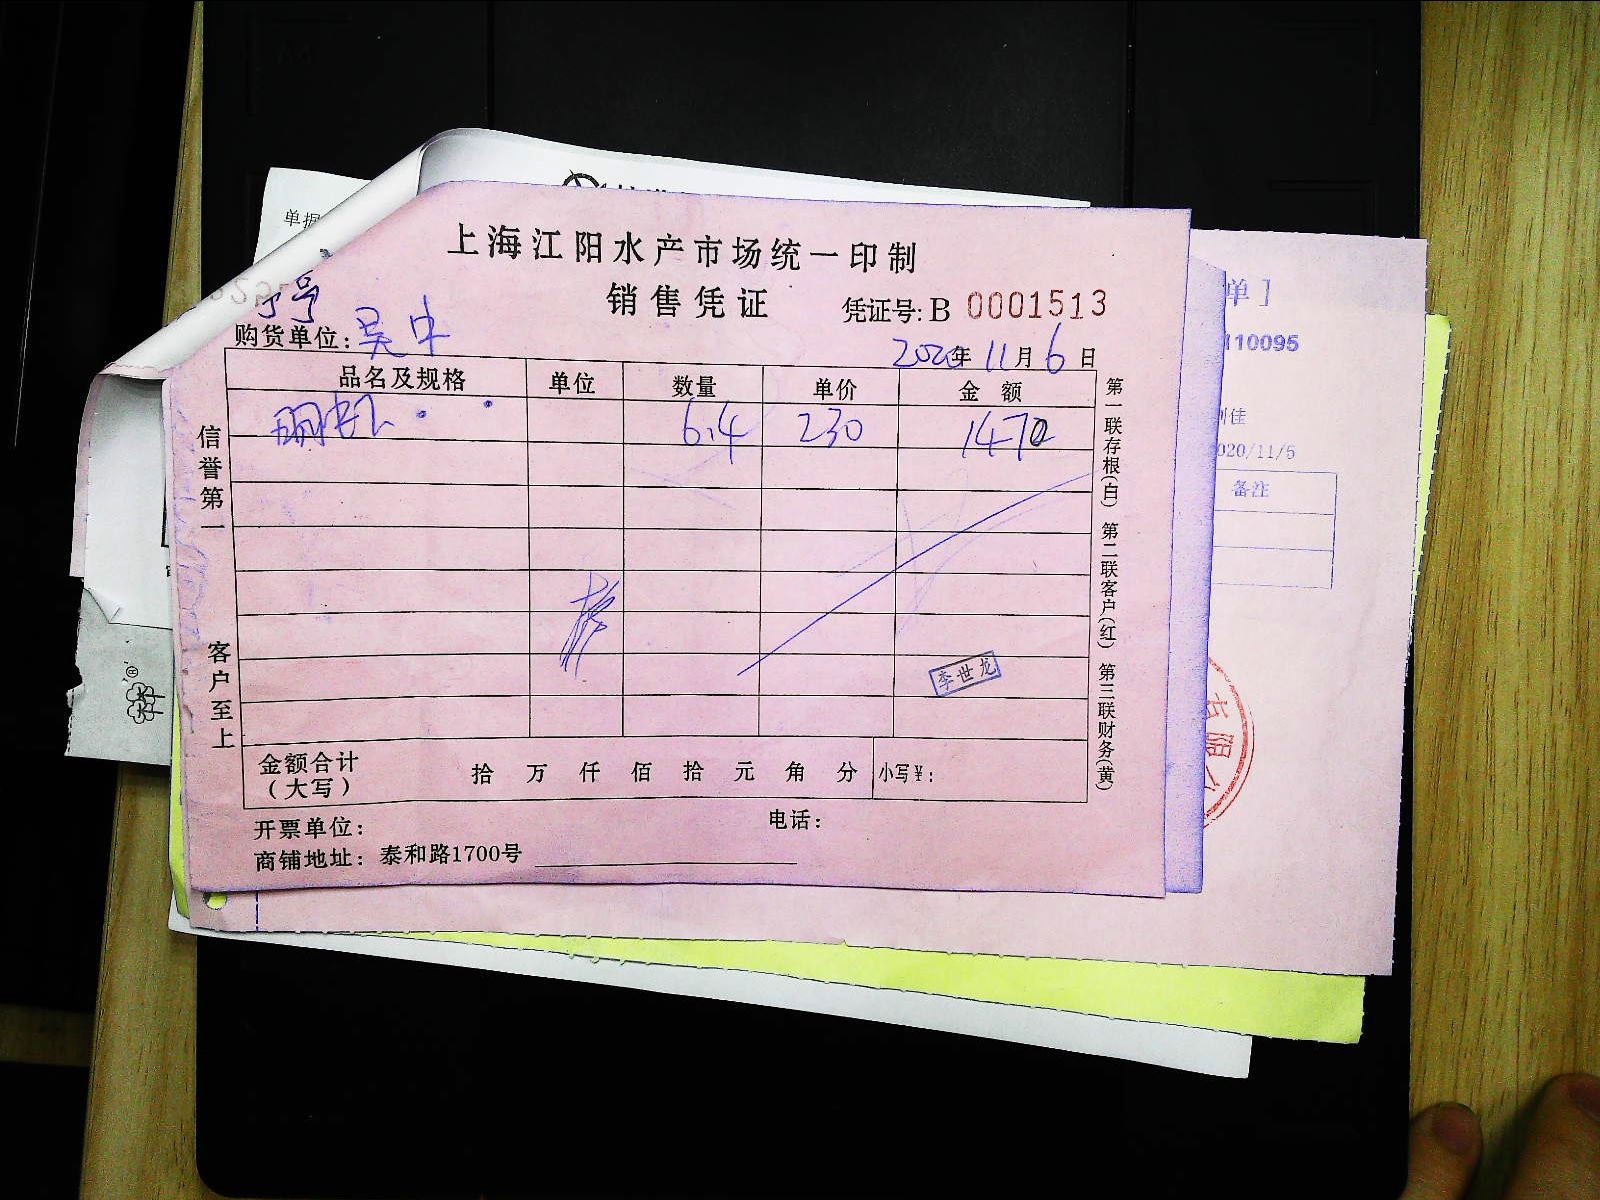 单据
上海江阳水产市场统一印制
销售凭证
凭证号: B 0001513
购货单位: 吴中
2020年 11月 6日
品名及规格 单位 数量 单价 金额
6.4 230 1470
李世龙
金额合计(大写) 拾 万 仟 佰 拾 元 角 分 小写¥:
开票单位: 电话:
商铺地址: 泰和路1700号
信誉第一
客户至上
第一联存根(白) 第二联客户(红) 第三联财务(黄)
单]
110095
佳
020/11/5
备注
有限公